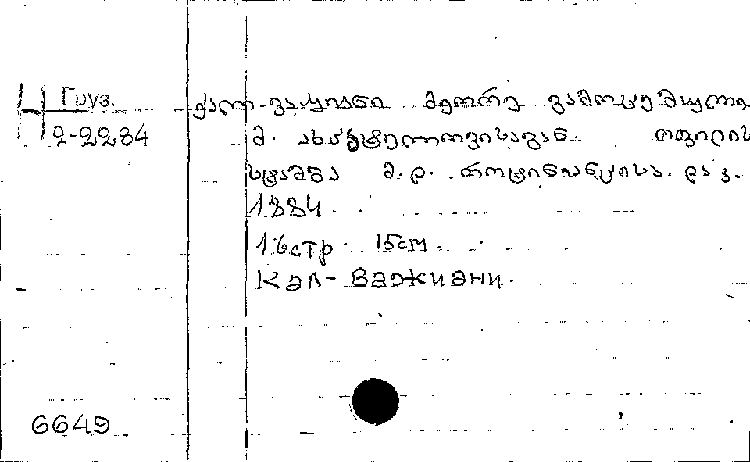 Груз.
2-2284
ქალ-ვაჟიანი მეორე გამოცემული
მ. ახპტელოვისაგან თფილის
სტამბა მ.დ. როტინიანცისა და კ.
1884
16стр 15см.
Кал-Важиани.
6649